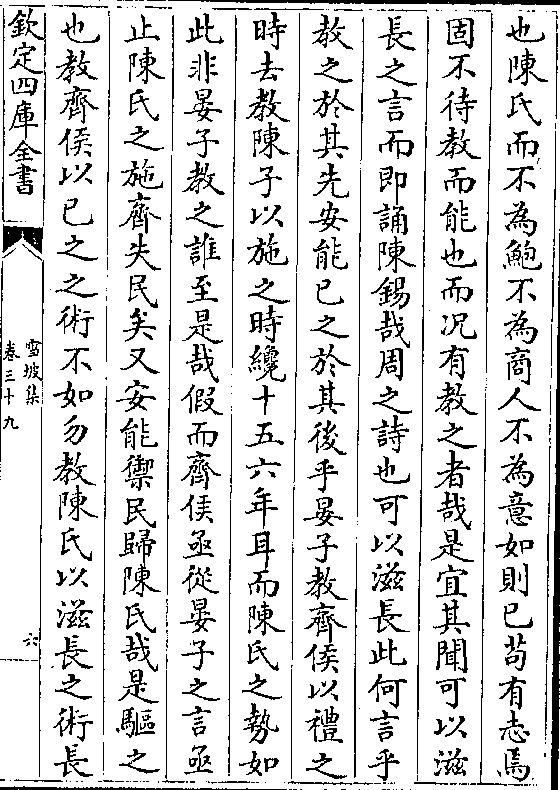 也陳氏而不為鮑不為商人不為意如則已茍有志焉
固不待教而能也而况有教之者哉是宜其聞可以滋
長之言而即誦陳錫哉周之詩也可以滋長此何言乎
教之於其先安能已之於其後乎晏子教齊侯以禮之
時去教陳子以施之時纔十五六年耳而陳氏之勢如
此非晏子教之誰至是哉假而齊侯亟從晏子之言亟
止陳氏之施齊失民矣又安能禦民歸陳氏哉是驅之
也教齊侯以已之之術不如勿教陳氏以滋長之術長
欽定四庫全書
雪坡集
卷三十九
六